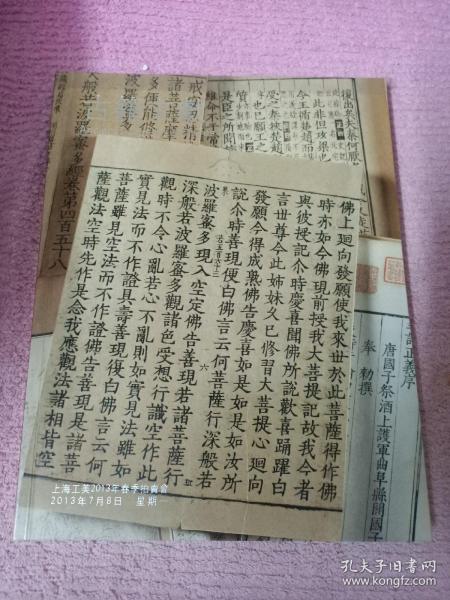 復出矣夫秦何厭
是臣之所聞
正義序
唐國子祭酒上護軍曲阜縣開國子
奉 勅撰
佛上迴向發願使我來世於此菩薩得作佛
時亦如今佛現前授我大菩提記故我今者
與彼授記尒時慶喜聞佛所說歡喜踊躍白
言世尊今此姊妹久已修習大菩提心迴向
發願今得成熟佛告慶喜如是如是如汝所
說尒時善現便白佛言云何菩薩行深般若
波羅蜜多現入空定佛告善現若諸菩薩行
六
深般若波羅蜜多觀諸色受想行識空作此
觀時不令心亂若心不亂則如實見法雖如
實見法而不作證具壽善現復白佛言云何
菩薩雖見空法而不作證佛告善現是諸菩
薩觀法空時先作是念我應觀法諸相皆空
諸菩薩摩
多俱能修
波羅蜜多
般若波羅蜜多經卷第四百五十八
上海工美2013年春季拍賣會
2013年7月8日 星期
孔夫子旧书网
www.kongfz.com